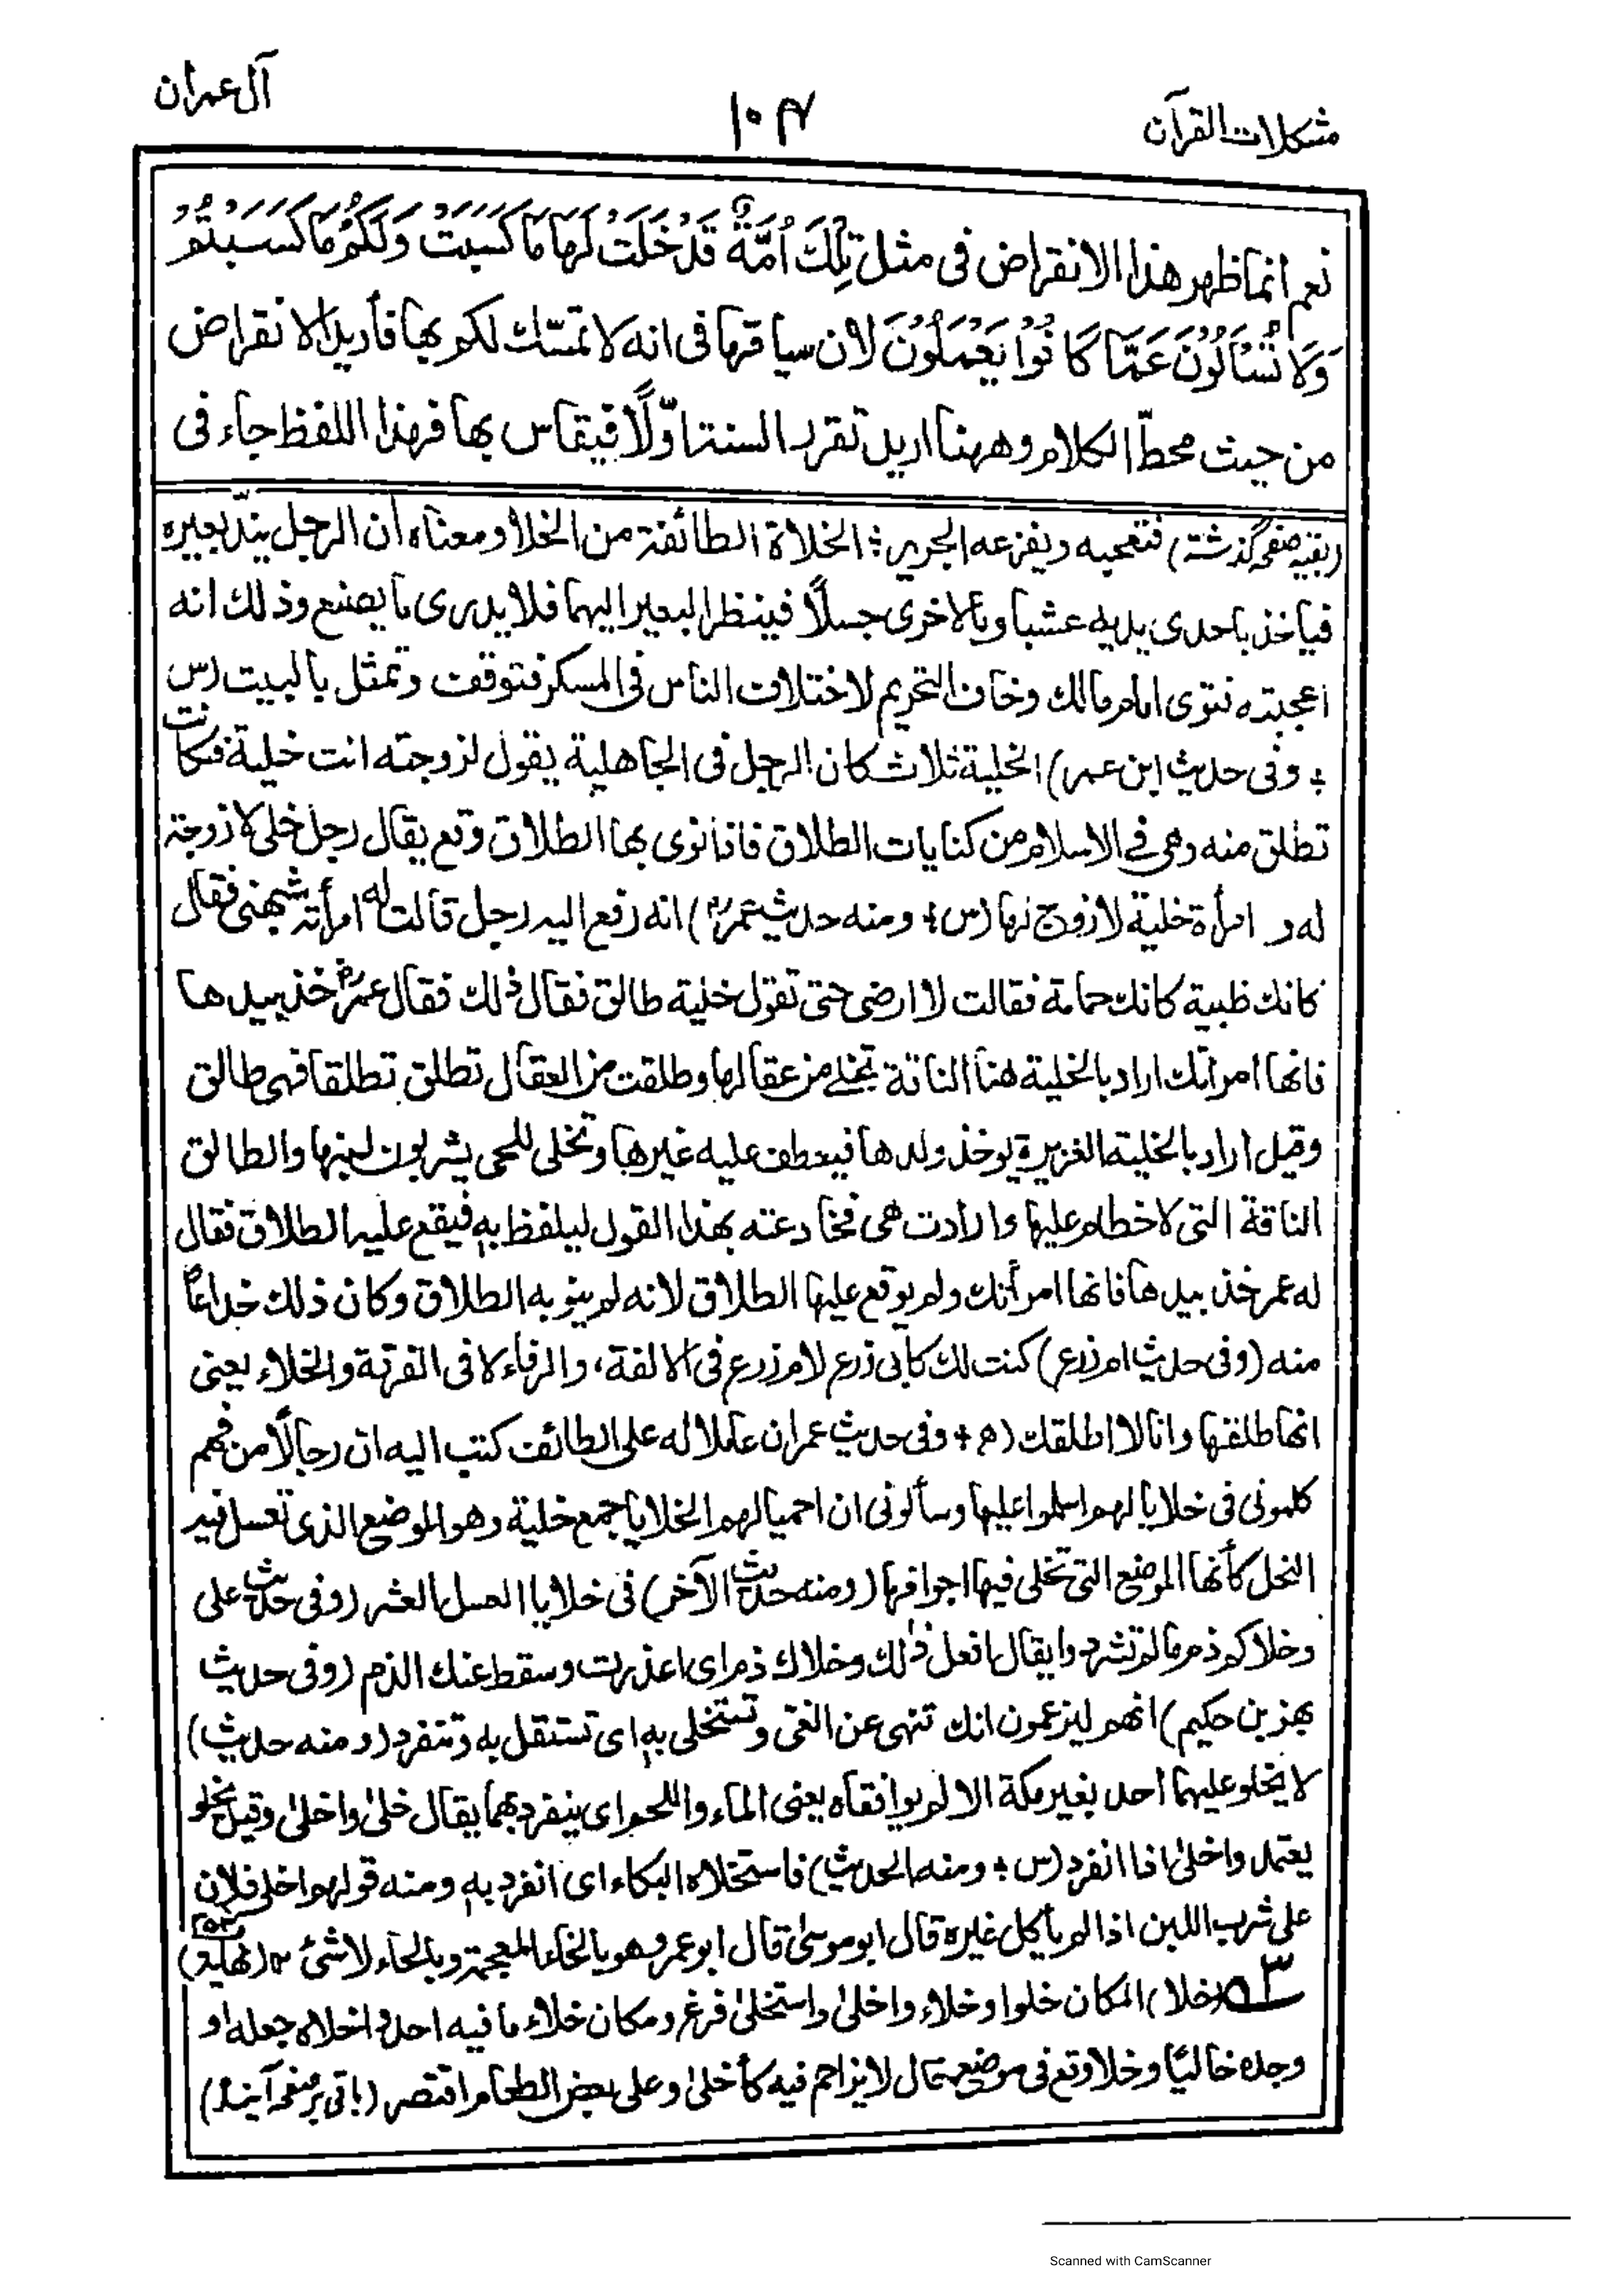 آل عمران
۱۰۴
مشکلات القرآن
نعم انما ظهر هذا الانقراض فی مثل تِلْكَ اُمَّةٌ قَدْ خَلَتْ لَهَا مَا كَسَبَتْ وَلَكُمْ مَا كَسَبْتُمْ
وَلَا تُسْأَلُوْنَ عَمَّا كَانُوْا يَعْمَلُوْنَ لان سیاقها فی انه لا تمسّك لكم بها فأرید الانقراض
من حیث محطّ الكلام وههنا ارید تقرر السنة اوّلًا فیقاس بها فهذا اللفظ جاء فی
(بقیه صفحه گذشته) فتعجبه ویفزعه الجریر ؛ الخلاة الطائفة من الخلا ومعناه أن الرجل یندّ بعیره
فیأخذ باحدی یدیه عشبا وبالاخری حبلًا فینظر البعیر الیهما فلا یدری ما یصنع وذلك انه
اعجبته فتوی امام مالك وخاف التحریم لاختلاف الناس فی المسكر فتوقف وتمثل بالبیت (س
؛ وفی حدیث ابن عمر) الخلیة ثلاث كان الرجل فی الجاهلیة یقول لزوجته انت خلیة فكانت
تطلق منه وهی فی الاسلام من كنایات الطلاق فاذا نوی بها الطلاق وقع یقال رجل خلی لا زوجة
له و امرأة خلیة لا زوج لها (س ؛ ومنه حدیث عمرؓ) انه رفع الیه رجل قالت له امرأته شبهنی فقال
كانك ظبیة كانك حمامة فقالت لا ارضی حتی تقول خلیة طالق فقال ذلك فقال عمرؓ خذ بیدها
فانها امرأتك اراد بالخلیة هنا الناقة تخلی من عقالها وطلقت من العقال تطلق تطلقا فهی طالق
وقیل اراد بالخلیة الغزیرة یوخذ ولدها فیعطف علیه غیرها وتخلی للحی یشربون لبنها والطالق
الناقة التی لا خطام علیها وارادت هی مخادعته بهذا القول لیلفظ به فیقع علیه الطلاق فقال
له عمر خذ بیدها فانها امرأتك ولم یوقع علیها الطلاق لانه لم ینو به الطلاق وكان ذلك خداعًا
منه (وفی حدیث ام زرع) كنت لك كأبی زرع لام زرع فی الالفة، والرفاء لا فی الفرقة والخلاء یعنی
انها طلقها وانا لا اطلقك (ه + وفی حدیث عمر ان عاملا له علی الطائف كتب الیه ان رجالًا من فهم
كلمونی فی خلایا لهم اسلموا علیها وسألونی ان احمیها لهم الخلایا جمع خلیة وهو الموضع الذی تعسل فیه
النحل كأنها الموضع التی تخلی فیها اجوافها (ومنه حدیث الآخر) فی خلایا العسل العشر (وفی حدیث علی
وخلاكم ذم مالم تشردوا یقال افعل ذلك وخلاك ذم ای اعذرت وسقط عنك الذم (وفی حدیث
بهز بن حكیم) انهم لیزعمون انك تنهی عن الغی وتستخلی به ای تستقل به وتنفرد (ومنه حدیث)
لا یخلو علیهما احد بغیر مكة الا لم یوافقاه یعنی الماء واللحم ای ینفرد بهما یقال خلیٰ واخلیٰ وقیل یخلو
یعتمد واخلیٰ اذا انفرد (س ؛ ومنه الحدیث) فاستخلاه البكاء ای انفرد به ومنه قولهم اخلی فلان
علی شرب اللبن اذا لم یأكل غیره قال ابو موسیٰ قال ابو عمرو هو بالخاء المعجمة وبالحاء لا شئ ۱۲ (نهایه)
۳ (خلا) المكان خلوا وخلاء واخلیٰ واستخلیٰ فرغ ومكان خلاء ما فیه احد واخلاه جعله او
وجده خالیًا وخلا وقع فی موضع خال لا یزاحم فیه كأخلیٰ وعلی بعض الطعام اقتصر (باقی بر صفحه آینده)
Scanned with CamScanner